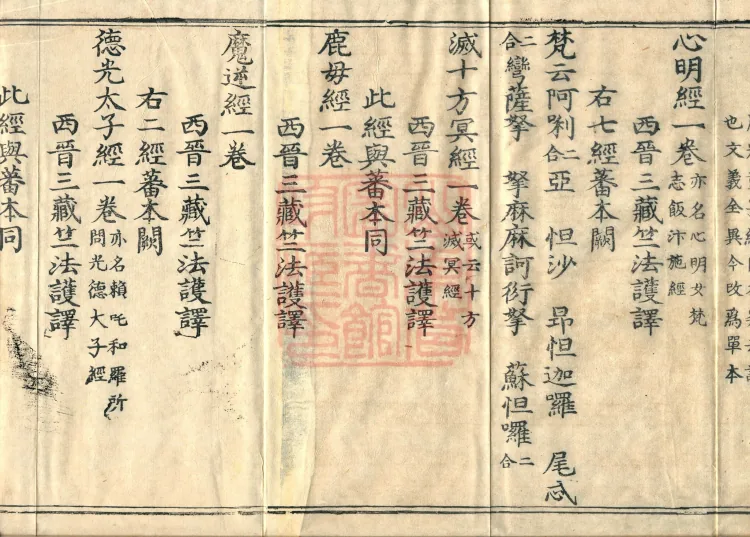 也文義全異今攺爲單本
心明經一卷亦名心明女梵
志飯汴施經
西晉三藏竺法護譯
右七經蕃本闕
梵云阿唎二合亞 怛沙 昂怛迦囉 尾忒
二合彎薩拏 拏麻麻訶衍拏 蘇怛囉二合
滅十方冥經一卷或云十方
滅冥經
西晉三藏竺法護譯
此經與蕃本同
鹿毋經一卷
西晉三藏竺法護譯
魔逆經一卷
西晉三藏竺法護譯
右二經蕃本闕
德光太子經一卷亦名賴吒和羅所
問光德大子經
西晉三藏竺法護譯
此經與蕃本同